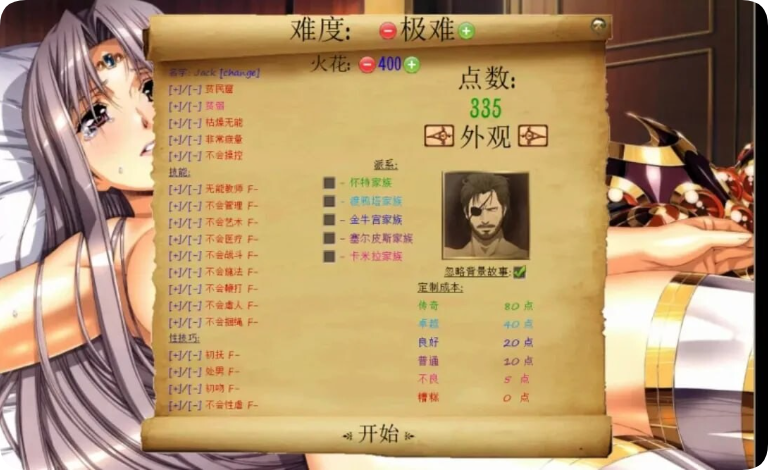 难度: 极难
火花: 400
点数:
335
外观
名字: Jack [change]
[+]/[-] 贫民窟
[+]/[-] 贫困
[+]/[-] 枯燥无能
[+]/[-] 非常疲量
[+]/[-] 不会操控
技能:
[+]/[-] 无能教师 F-
[+]/[-] 不会管理 F-
[+]/[-] 不会艺术 F-
[+]/[-] 不会医疗 F-
[+]/[-] 不会战斗 F-
[+]/[-] 不会施法 F-
[+]/[-] 不会鞭打 F-
[+]/[-] 不会虐人 F-
[+]/[-] 不会捆绳 F-
性技巧:
[+]/[-] 初抚 F-
[+]/[-] 处男 F-
[+]/[-] 初吻 F-
[+]/[-] 不会性虐 F-
派系:
- 怀特家族
- 家族
- 金牛宫家族
- 塞尔皮斯家族
- 卡米拉家族
忽略背景故事:
定制成本:
传奇 80 点
卓越 40 点
良好 20 点
普通 10 点
不良 5 点
糟糕 0 点
开始